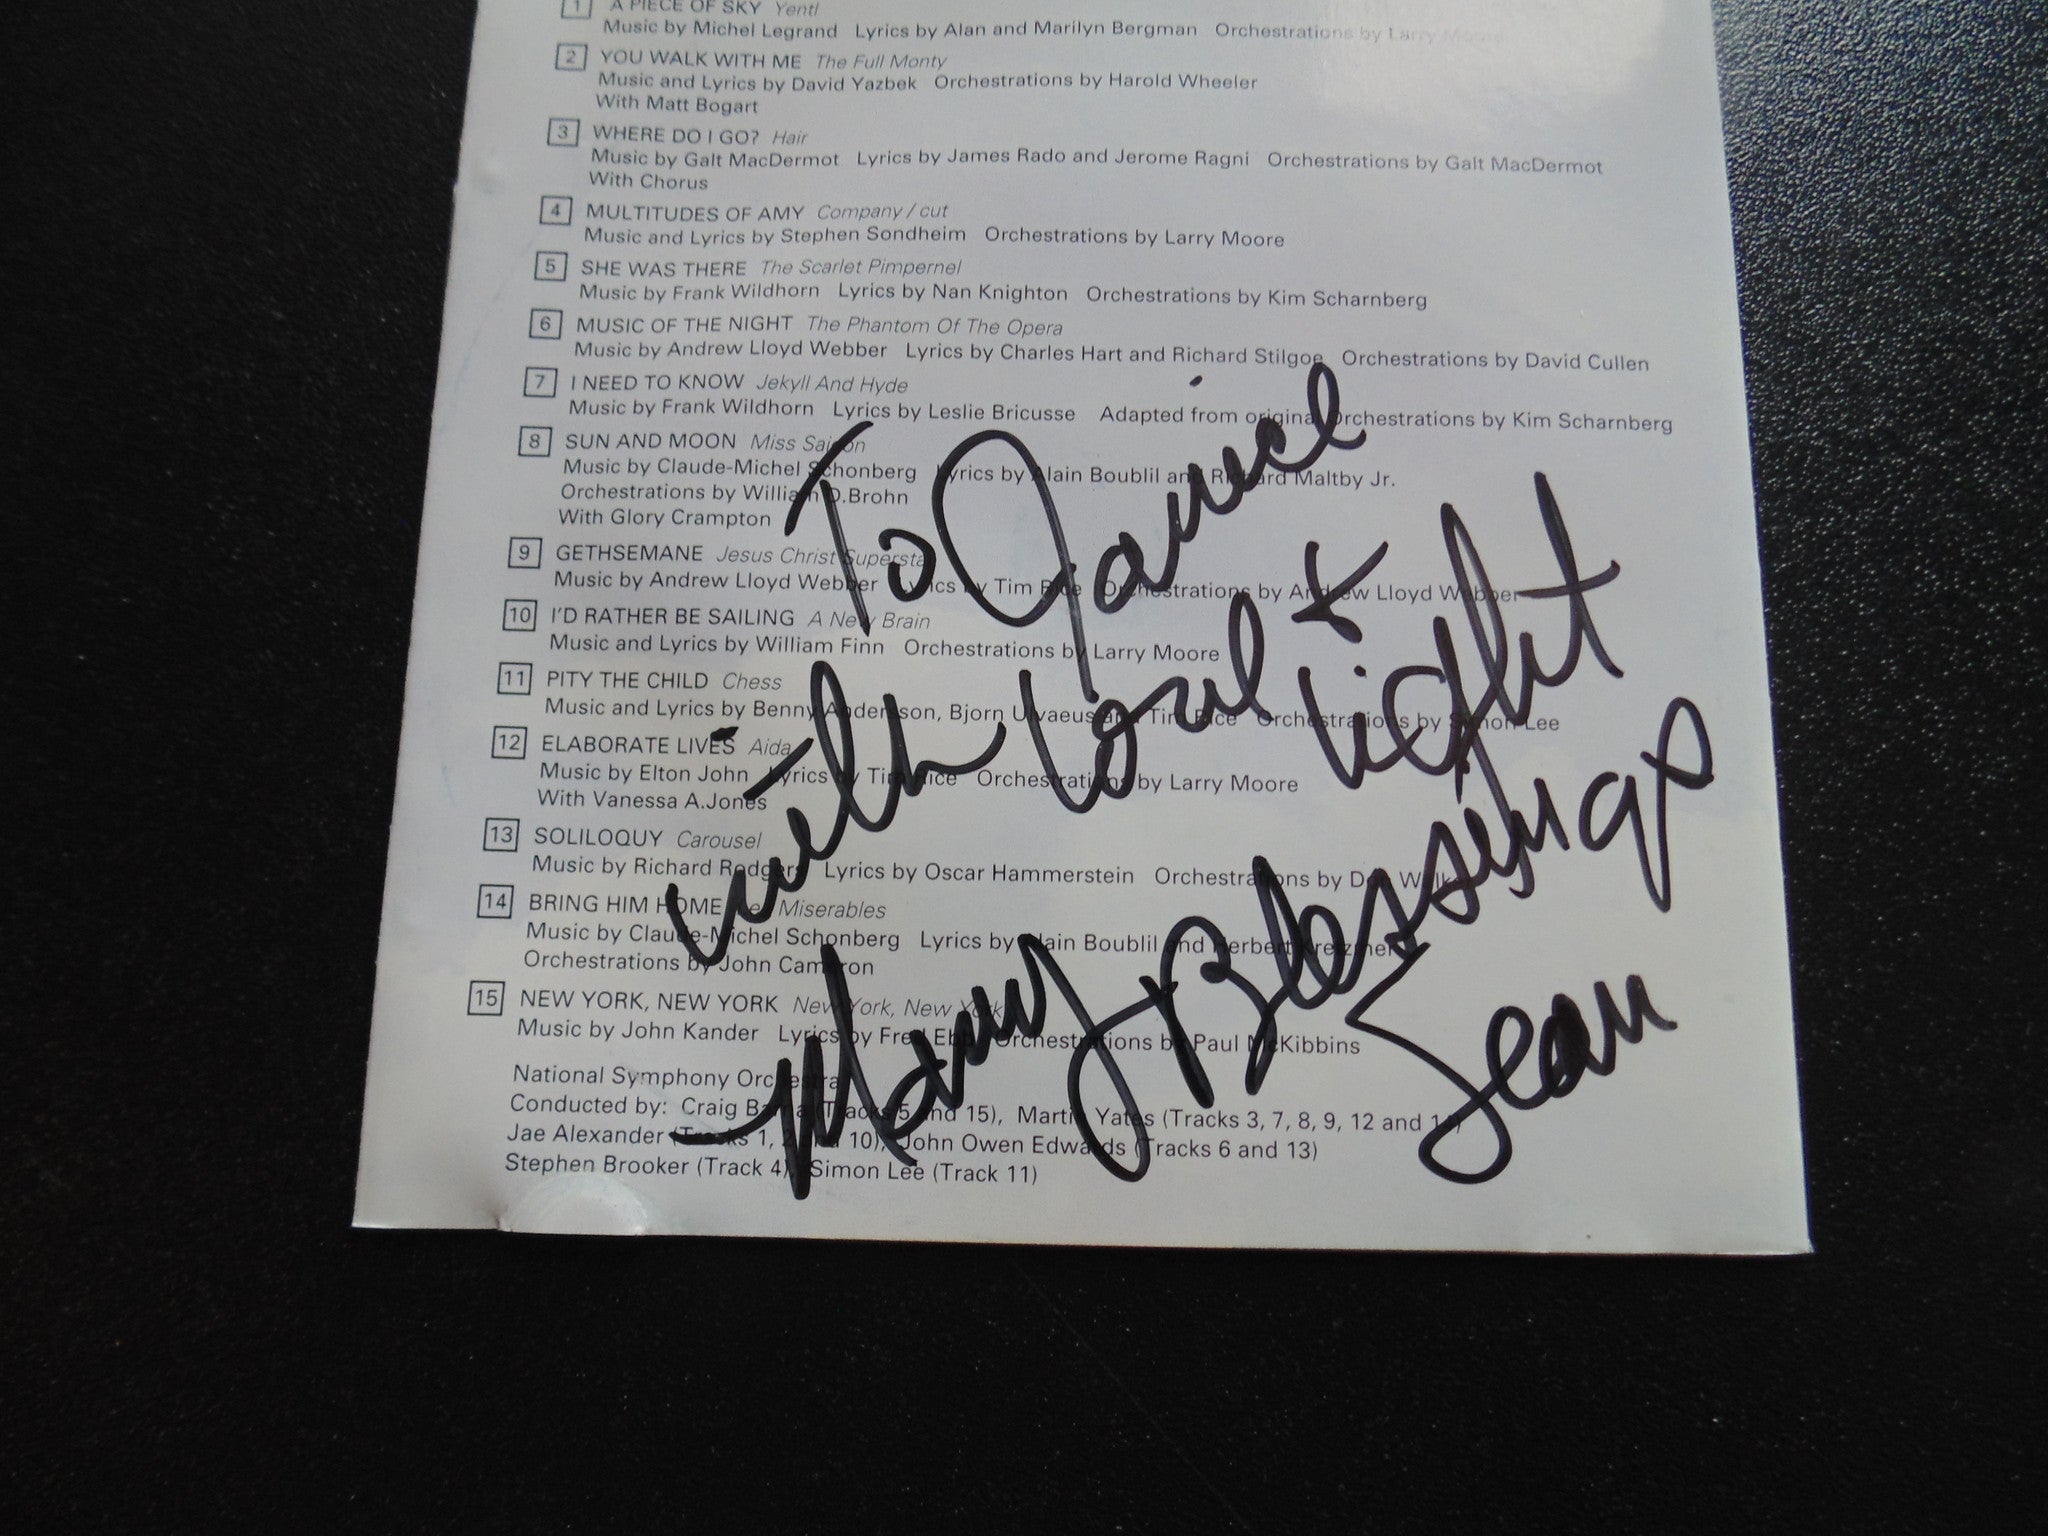 1 A PIECE OF SKY Yentl
Music by Michel Legrand Lyrics by Alan and Marilyn Bergman Orchestrations by Larry Moore
2 YOU WALK WITH ME The Full Monty
Music and Lyrics by David Yazbek Orchestrations by Harold Wheeler
With Matt Bogart
3 WHERE DO I GO? Hair
Music by Galt MacDermot Lyrics by James Rado and Jerome Ragni Orchestrations by Galt MacDermot
With Chorus
4 MULTITUDES OF AMY Company / cut
Music and Lyrics by Stephen Sondheim Orchestrations by Larry Moore
5 SHE WAS THERE The Scarlet Pimpernel
Music by Frank Wildhorn Lyrics by Nan Knighton Orchestrations by Kim Scharnberg
6 MUSIC OF THE NIGHT The Phantom Of The Opera
Music by Andrew Lloyd Webber Lyrics by Charles Hart and Richard Stilgoe Orchestrations by David Cullen
7 I NEED TO KNOW Jekyll And Hyde
Music by Frank Wildhorn Lyrics by Leslie Bricusse Adapted from original Orchestrations by Kim Scharnberg
8 SUN AND MOON Miss Saigon
Music by Claude-Michel Schonberg Lyrics by Alain Boublil and Richard Maltby Jr.
Orchestrations by William D.Brohn
With Glory Crampton
9 GETHSEMANE Jesus Christ Superstar
Music by Andrew Lloyd Webber Lyrics by Tim Rice Orchestrations by Andrew Lloyd Webber
10 I'D RATHER BE SAILING A New Brain
Music and Lyrics by William Finn Orchestrations by Larry Moore
11 PITY THE CHILD Chess
Music and Lyrics by Benny Andersson, Bjorn Ulvaeus and Tim Rice Orchestrations by Simon Lee
12 ELABORATE LIVES Aida
Music by Elton John Lyrics by Tim Rice Orchestrations by Larry Moore
With Vanessa A.Jones
13 SOLILOQUY Carousel
Music by Richard Rodgers Lyrics by Oscar Hammerstein Orchestrations by Don Walker
14 BRING HIM HOME Les Miserables
Music by Claude-Michel Schonberg Lyrics by Alain Boublil and Herbert Kretzmer
Orchestrations by John Cameron
15 NEW YORK, NEW YORK New York, New York
Music by John Kander Lyrics by Fred Ebb Orchestrations by Paul McKibbins
National Symphony Orchestra
Conducted by: Craig Barna (Tracks 5 and 15), Martin Yates (Tracks 3, 7, 8, 9, 12 and 14)
Jae Alexander (Tracks 1, 2 and 10), John Owen Edwards (Tracks 6 and 13)
Stephen Brooker (Track 4), Simon Lee (Track 11)
To Janice
with Love &
Light
Many Blessings
Sean